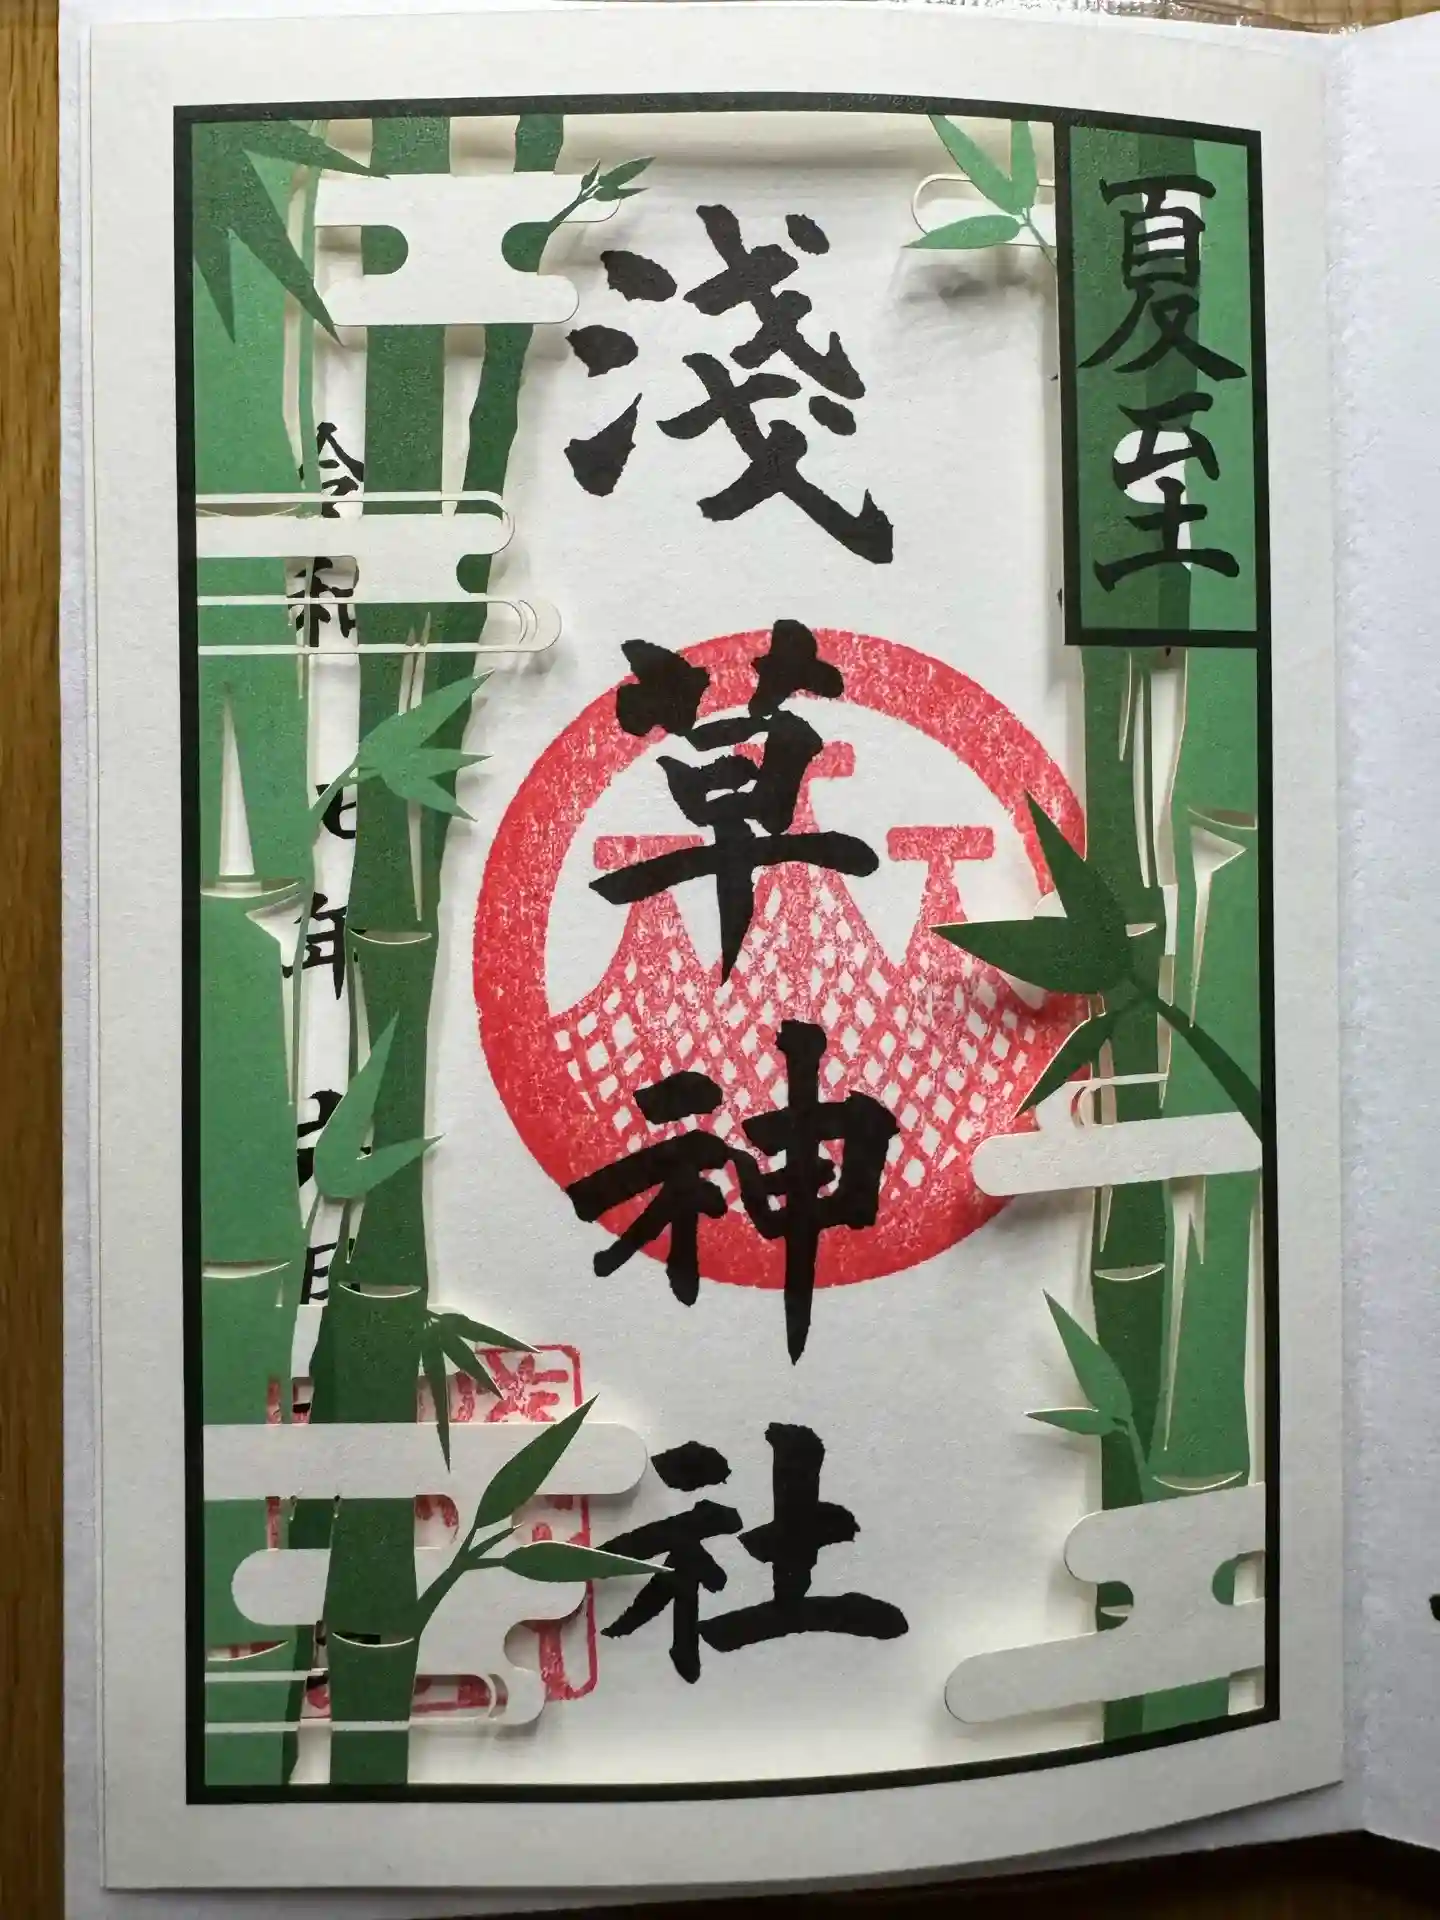 夏至
淺草神社
令和七年六月